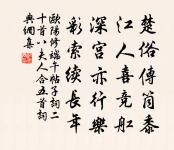 楚俗傳筒黍
江人喜競舡
深宮亦行樂
彩索續長年
歐陽修端午帖子詞二
十首八夫人合五首詞
與網集